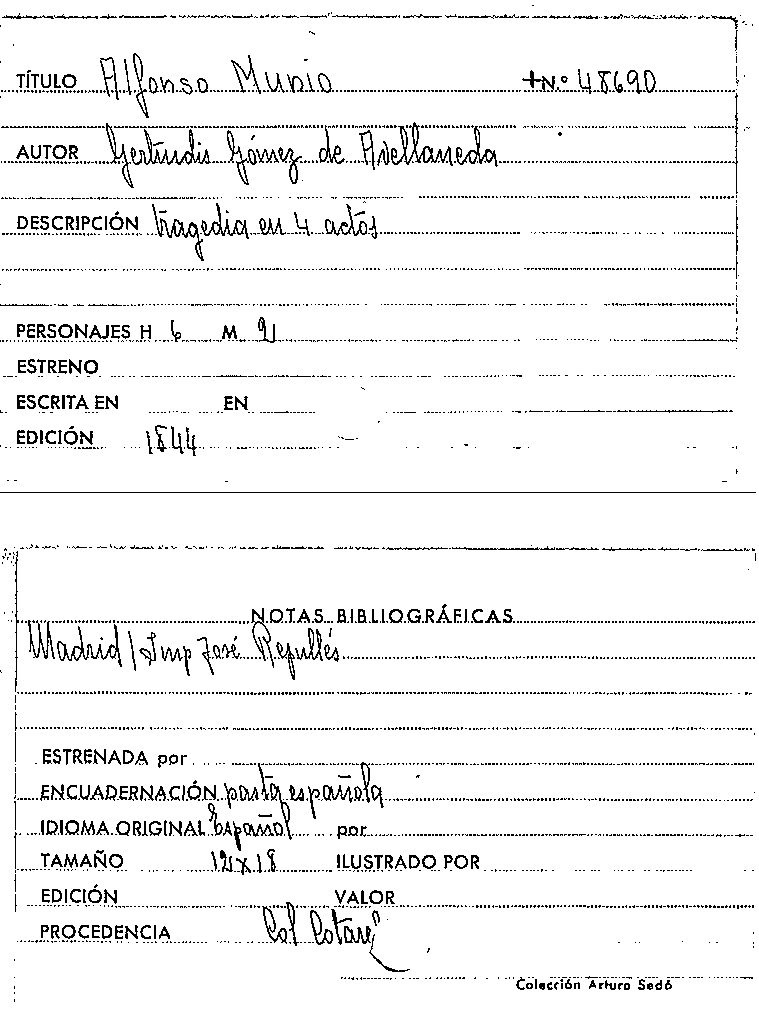 TÍTULO Alfonso Munio +N.º 48690
AUTOR Gertrudis Gómez de Avellaneda
DESCRIPCIÓN tragedia en 4 actos
PERSONAJES H 6 M 2
ESTRENO
ESCRITA EN EN
EDICIÓN 1844
NOTAS BIBLIOGRÁFICAS
Madrid / Imp José Repullés
ESTRENADA por
ENCUADERNACIÓN pasta española
IDIOMA ORIGINAL Español por
TAMAÑO 12 x 18 ILUSTRADO POR
EDICIÓN VALOR
PROCEDENCIA Col Cotarel
Colección Arturo Sedó